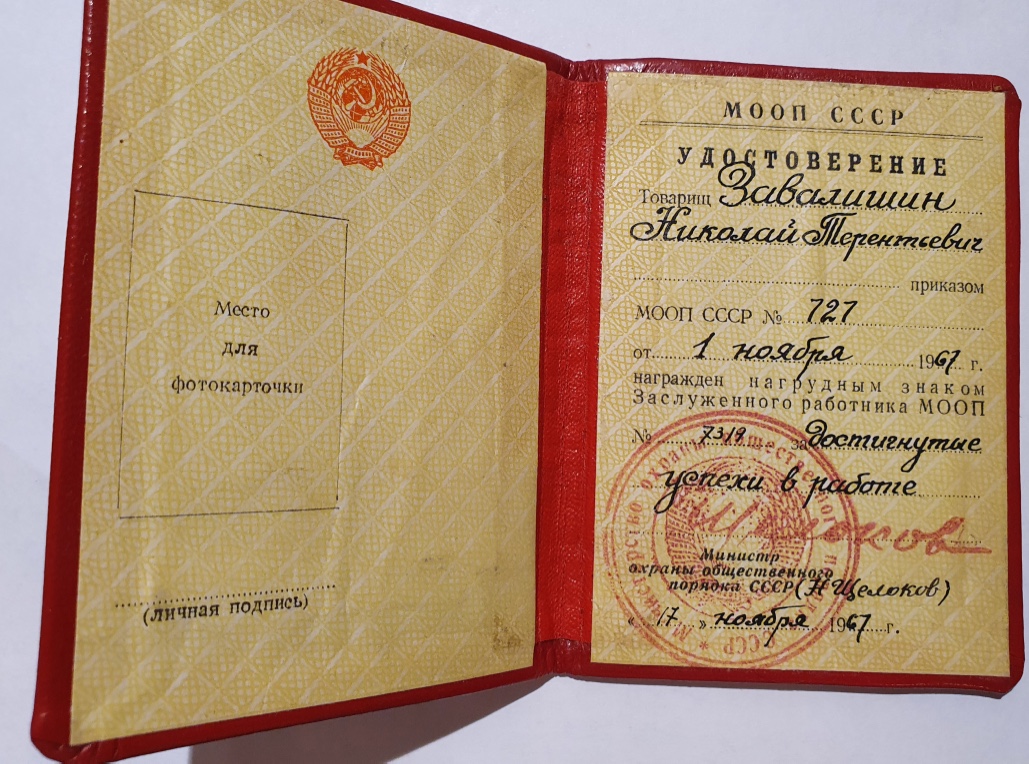 Место
для
фотокарточки
(личная подпись)
МООП СССР
УДОСТОВЕРЕНИЕ
Товарищ Завалишин
Николай Терентьевич
приказом
МООП СССР № 727
от 1 ноября 1967 г.
награжден нагрудным знаком
Заслуженного работника МООП
№ 7319 за достигнутые
успехи в работе
Щелоков
Министр
охраны общественного
порядка СССР (Н Щелоков)
«17» ноября 1967 г.
Министерство охраны общественного СССР